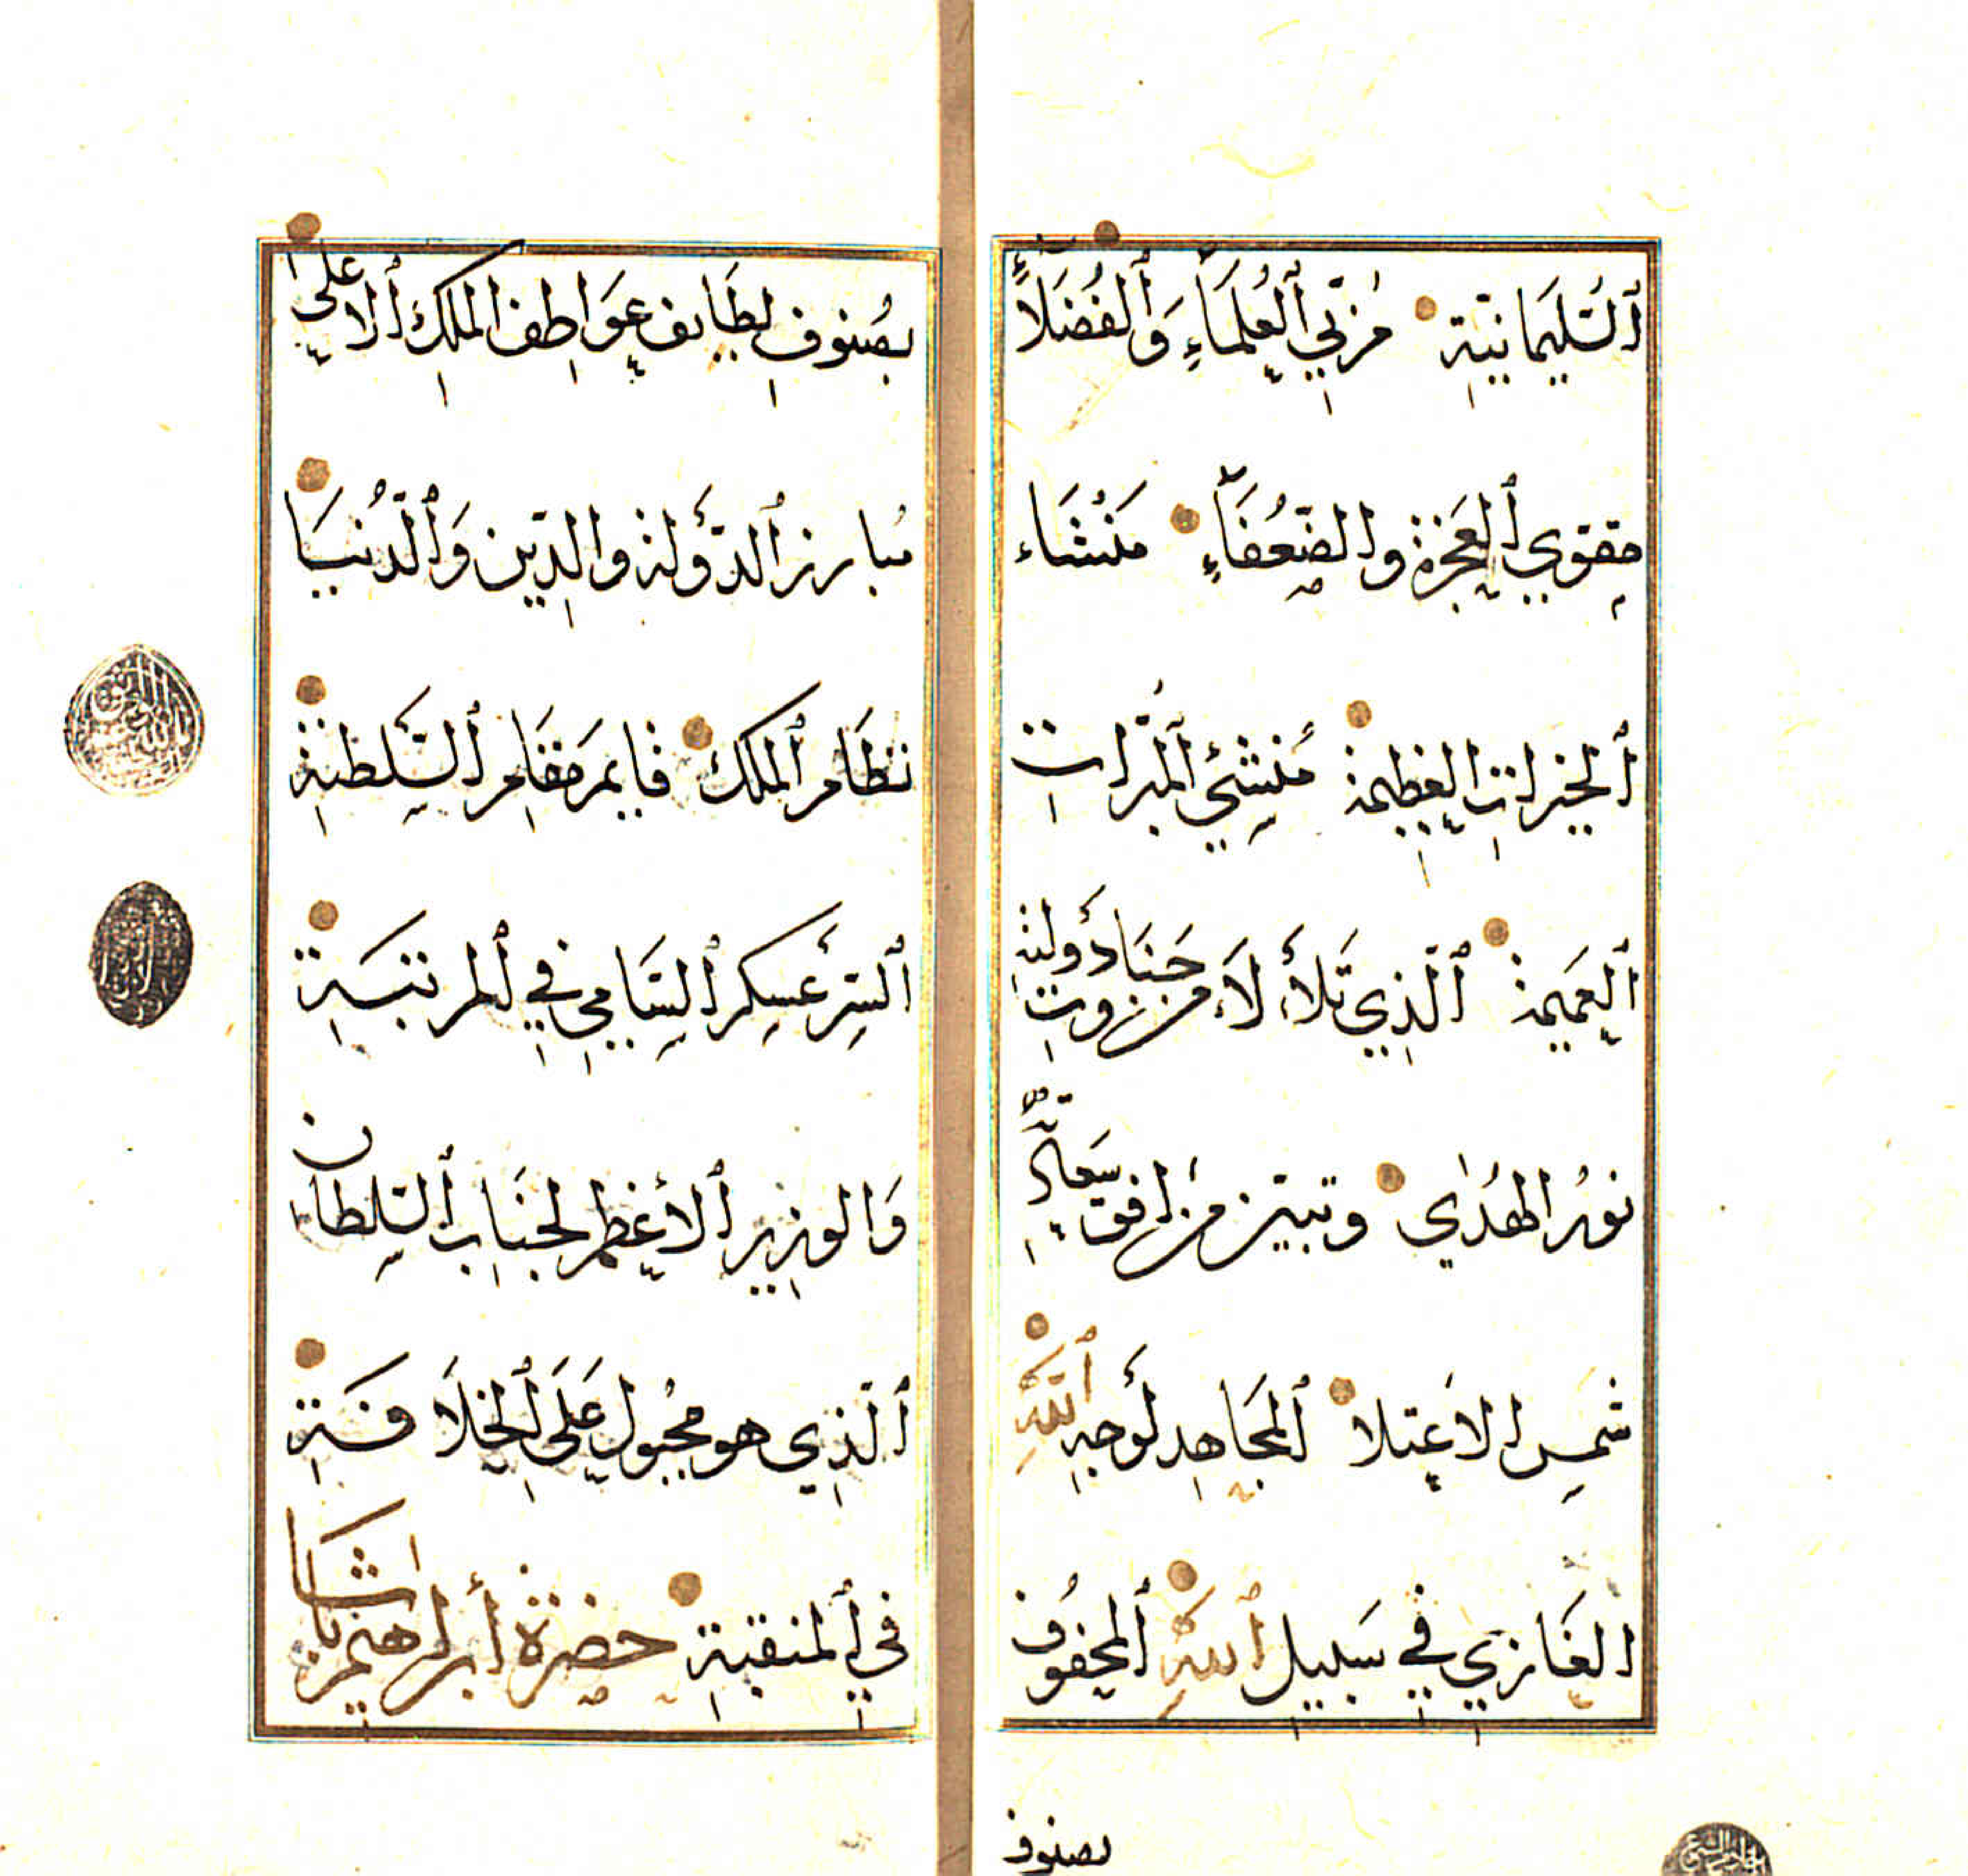 ٱلسُّلَيمَانيّةِ مُرَبّي ٱلعُلَمَآءِ وَٱلفُضَلَآءِ
مقوي ٱلعَجَزة والضّعُفَآءِ مَنْشَاء
ٱلخيراتِ العظيمة مُنشِئ المبرّاتِ
ٱلعَميمة ٱلّذِي تَلَأْلَأَ من جَبَهوتِ دَولته
نورُ الهُدٰي وتبيّن من افق سَعَادته
شمسِ الاعتلا ٱلمجَاهِد لوَجهِ ٱللّه
الغَازي في سَبيل ٱللّه ٱلمحفُوف
بصنوف
بصُنوفِ لطَايف عَوَاطِف الملِك ٱلاعلى
مُبارز ٱلدَّولة والدّين وَٱلدُّنيَا
نظَام ٱلملك قايم مَقَام ٱلسّلطنةِ
ٱلسّرعَسكر ٱلسَّامي في ٱلمرتبَةِ
وَالوزير ٱلأعظم لجنَاب ٱلسّلطان
ٱلّذِي هو مجبُول عَلَى ٱلخلَافَةِ
في ٱلمنقبةِ حضرة أبراهيم باشا